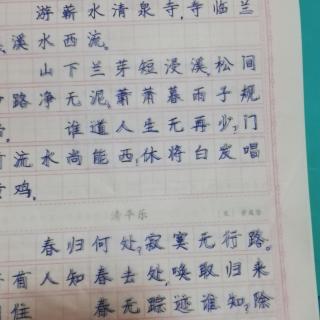 游蕲水清泉寺,寺临兰
溪水西流。
山下兰芽短浸溪,松间
路净无泥,萧萧暮雨子规
谁道人生无再少?门
流水尚能西,休将白发唱
鸡。
清平乐
春归何处?寂寞无行路。
有人知春去处,唤取归来
住 春无踪迹谁知?除